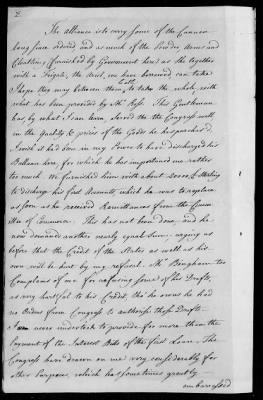 2
The alliance is to carry some of the Cannon
long since ordered, and as much of the Powder, Arms and
Cloathing (furnished by Government here) as she together
with a Frigate, the Ariel, we have borrowed can take
I hope they may between them, take the whole, with
what has been provided by Mr Ross. This Gentleman
has, by what I can learn, served the Congress well
in the quality & prices of the Goods he has purchas'd
I wish it had been in my Power to have discharged his
Ballance here, for which he has importuned me rather
too much. We furnished him with about 20,000 £ Sterling
to discharge his first Accounts which he was to replace
as soon as he received Remittances from the Commit-
tee of Commerce. This has not been done, and he
now demands another nearly equal Sum, urging as
before that the Credit of the States as well as his
own will be hurt by my refusal. Mr Bingham too
Complains of me for refusing some of his Drafts,
as very hurtful to his Credit, tho he owns he had
no Orders from Congress to authorise those Drafts.
I never undertook to provide for more than the
Payment of the Interest Bills of the first Loan. The
Congress have drawn on me very considerably for
other Purposes, which has sometimes greatly
embarrassed